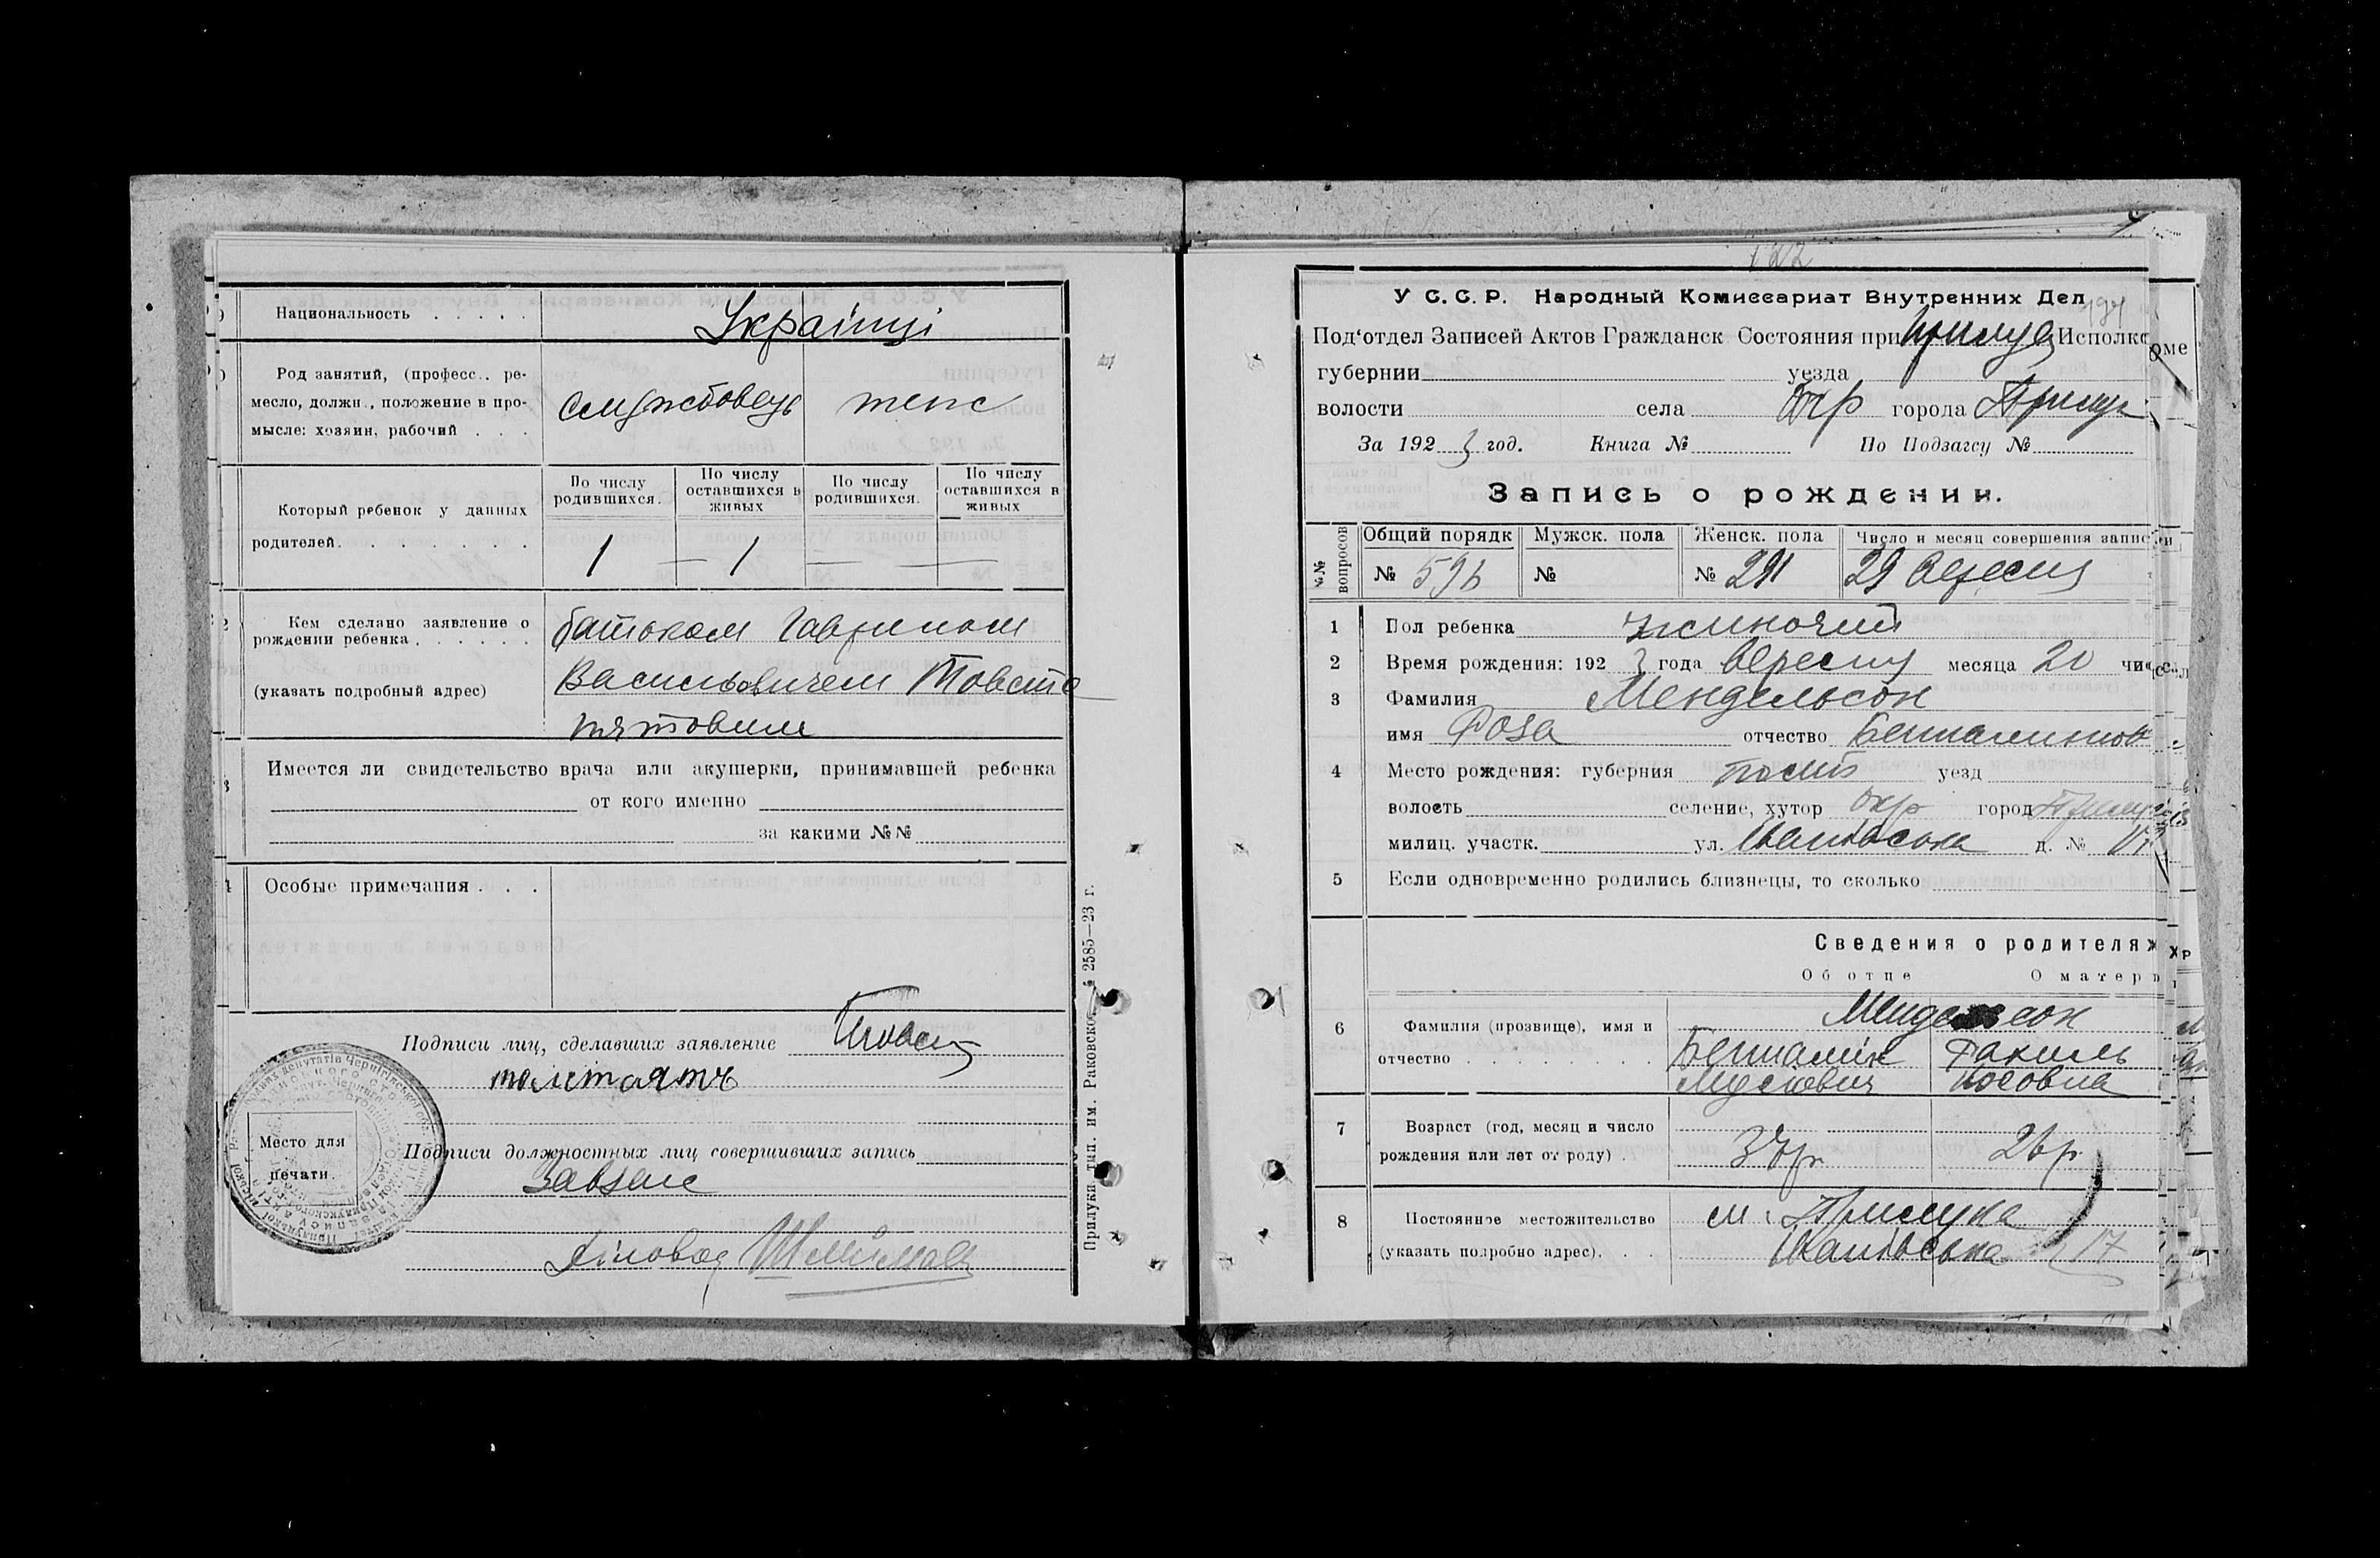 Национальность . . . . . Українці
Род занятий, (професс., ре-
месло, должн., положение в про-
мысле: хозяин, рабочий . . . службовець
Который ребенок у данных
родителей. . . . . . .
По числу родившихся. По числу оставшихся в живых По числу родившихся. По числу оставшихся в живых
1 — 1 — —
Кем сделано заявление о
рождении ребенка . . . . . .
(указать подробный адрес)
батьком
Васильовичем Товсто
пятовим
Имеется ли свидетельство врача или акушерки, принимавшей ребенка
от кого именно
за какими №№
Особые примечания . . .
Подписи лиц, сделавших заявление
Место для
печати.
Подписи должностных лиц совершивших запись
Завзагс
Діловод
Прилуки тип. им. Раковского 2585—23 г.
122
У С. С. Р. Народный Комиссариат Внутренних Дел
Под'отдел Записей Актов Гражданск Состояния при Прилуц Исполко
губернии уезда
волости села Окр города Прилук
За 1923 год. Книга № По Подзагсу №
Запись о рождении.
№№ вопросов
Общий порядк Мужск. пола Женск. пола Число и месяц совершения запис
№ 596 № № 291 29 Вересня
1 Пол ребенка жиночий
2 Время рождения: 1923 года вересня месяца 20 чис
3 Фамилия Мендельсон
имя Роза отчество Бениаминов
4 Место рождения: губерния Полт уезд
волость селение, хутор окр город Прилук
милиц. участк. ул. Іванівська д. № 17
5 Если одновременно родились близнецы, то сколько
Сведения о родителях
Об отце О матери
6 Фамилия (прозвище), имя и
отчество . . . . . . . .
Мендельсон
Бениамін Рахиль
Мусієвич Йосовна
7 Возраст (год, месяц и число
рождения или лет от роду) . 26 р.
8 Постоянное местожительство
(указать подробно адрес). . .
м. Прилука
Іванівська 17